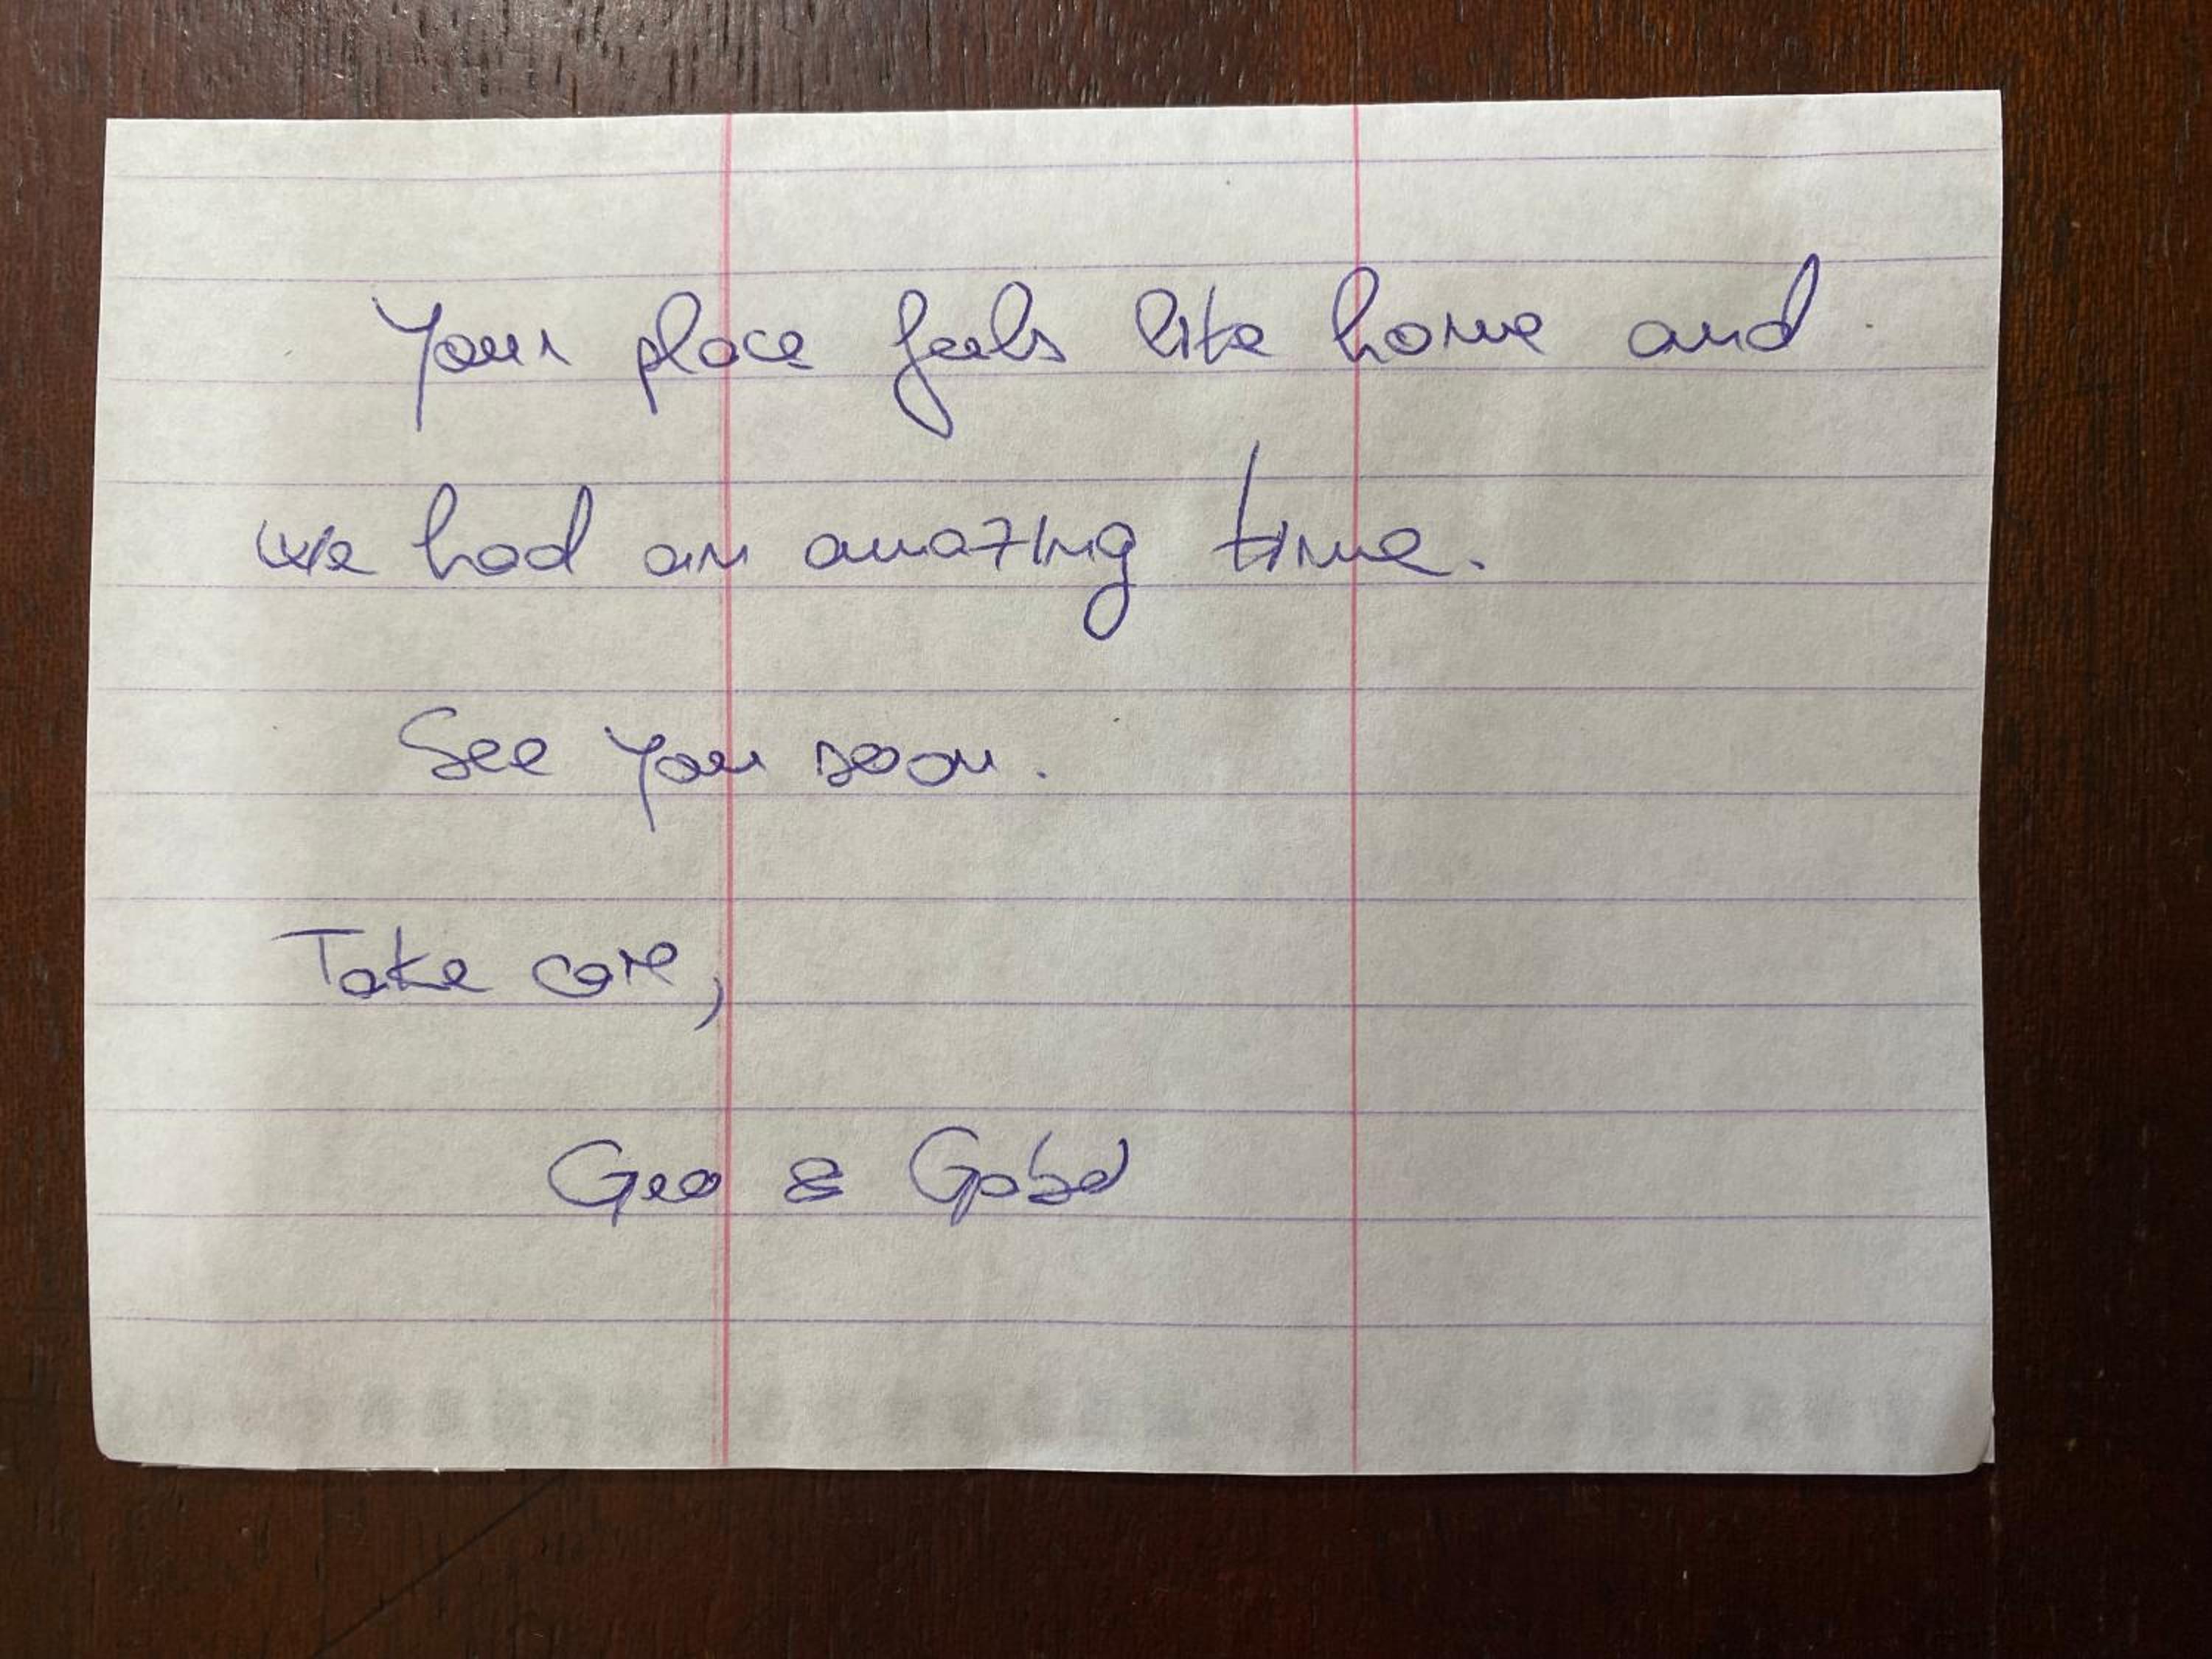 Your place feels like home and
we had an amazing time.
See you soon.
Take care,
Geo & Gabel